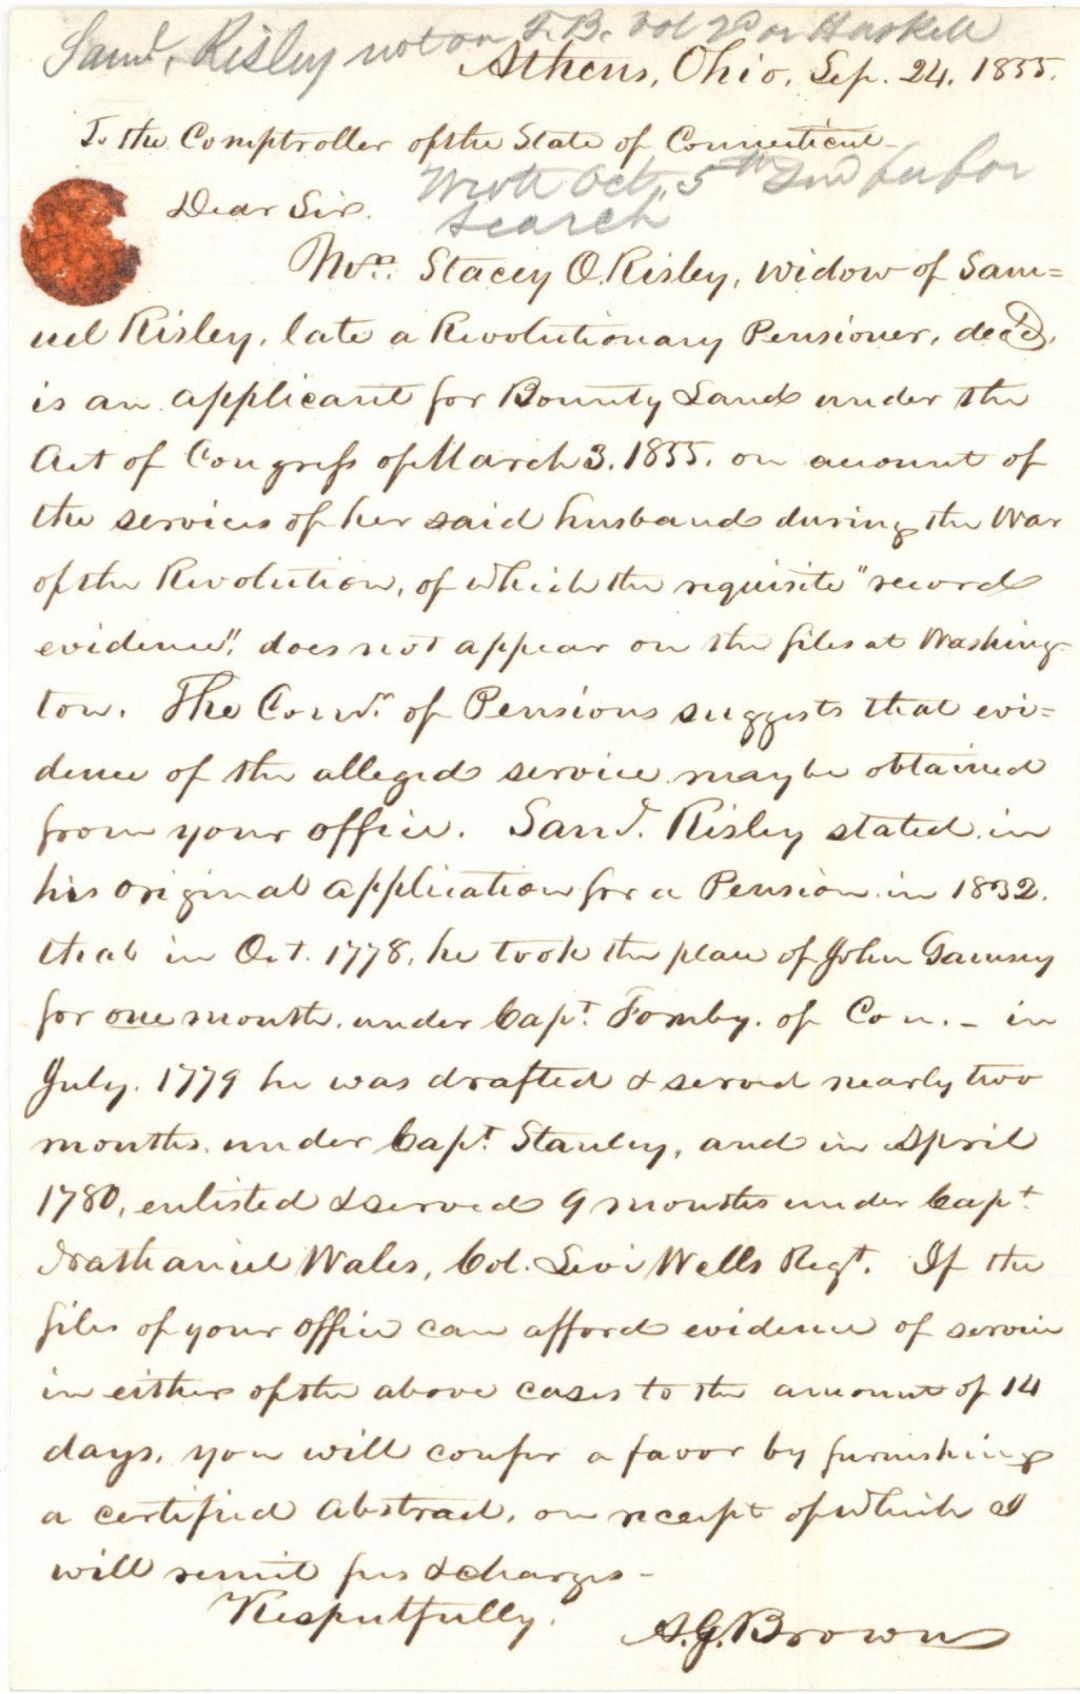 Saml. Risley not on T. B. Vol 2d or Haskell
Athens, Ohio, Sep. 24. 1855.
To the Comptroller of the State of Connecticut
Wrote Oct. 5th 2nd for
Dear Sir.
search
Mrs. Stacey O. Risley, widow of Sam=
uel Risley, late a Revolutionary Pensioner, decd,
is an applicant for Bounty Land under the
Act of Congress of March 3. 1855. on account of
the services of her said husband during the War
of the Revolution, of which the requisite "record
evidence", does not appear on the files at Washing-
ton. The Comr. of Pensions suggests that evi=
dence of the alleged service may be obtained
from your office. Saml. Risley stated in
his original application for a Pension in 1832.
that in Oct. 1778, he took the place of John
for one month. under Capt. Fomby. of Con. - in
July. 1779 he was drafted & served nearly two
months. under Capt. Stanley, and in April
1780, enlisted & served 9 months under Capt
Nathaniel Wales, Col. Levi Wells Regt. If the
files of your office can afford evidence of service
in either of the above cases to the amount of 14
days, you will confer a favor by furnishing
a certified abstract, on receipt of which I
will remit fees & charges -
Respectfully.
A.G. Brown